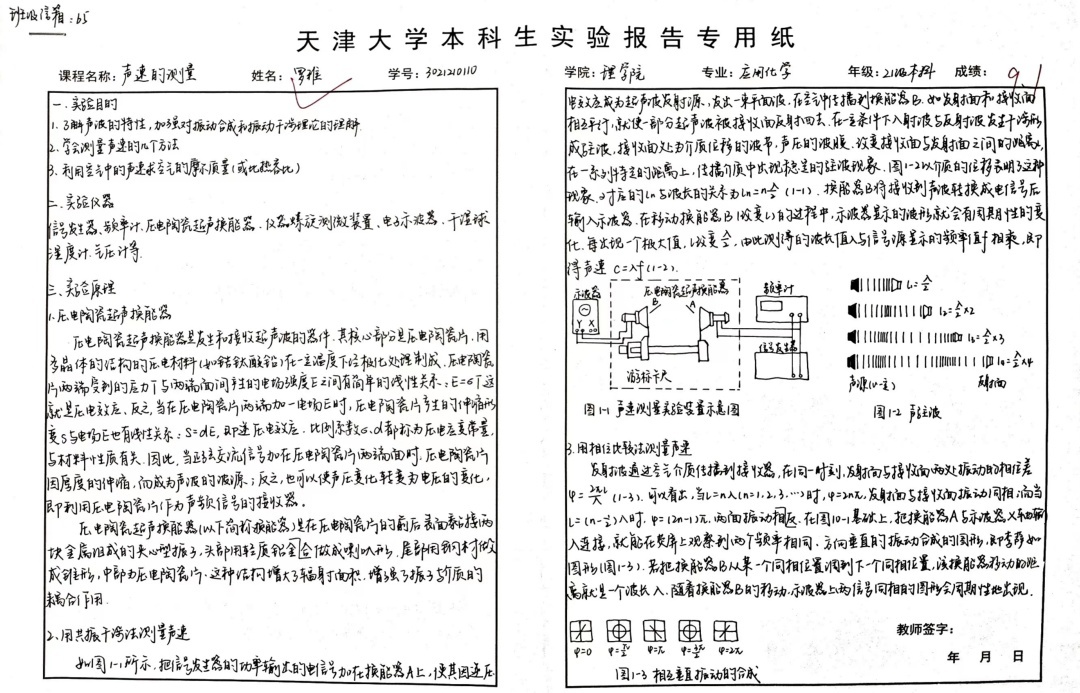 班级信箱:65
天津大学本科生实验报告专用纸
课程名称:声速的测量 姓名: 学号:3021210110
一.实验目的
1.了解声波的特性,加强对振动合成和振动干涉理论的理解
2.学会测量声速的几个方法
3.利用空气中的声速求空气的摩尔质量(或比热容比)
二.实验仪器
信号发生器、频率计、压电陶瓷超声换能器、仪器螺旋测微装置、电子示波器、干湿球
湿度计、气压计等.
三.实验原理
1.压电陶瓷超声换能器
压电陶瓷超声换能器是发生和接收超声波的器件,其核心部分是压电陶瓷片,用
多晶体的结构的压电材料(如锆钛酸铅)在一定温度下经极化处理制成.压电陶瓷
片两端受到的应力T与两端面间产生的电场强度E之间有简单的线性关系:E=σT这
就是压电效应.反之,当在压电陶瓷片两端加一电场E时,压电陶瓷片产生的伸缩形
变S与电场E也有线性关系:S=dE,即逆压电效应.比例系数σ、d都称为压电应变常量,
与材料性质有关.因此,当正弦交流信号加在压电陶瓷片两端面时,压电陶瓷片
因厚度的伸缩,而成为声波的波源;反之,也可以使声压变化转变为电压的变化,
即利用压电陶瓷片作为声频信号的接收器.
压电陶瓷超声换能器(以下简称换能器)是在压电陶瓷片的前后表面黏接两
块金属组成的夹心型振子,头部用轻质铝合金做成喇叭形,尾部用钢材做
成锥形,中部为压电陶瓷片.这种结构增大了辐射面积,增强了振子与介质的
耦合作用.
2.用共振干涉法测量声速
如图1-1所示.把信号发生器的功率输出的电信号加在换能器A上,使其因逆压
学院:理学院 专业:应用化学 年级:21级本科 成绩:9.1
电效应成为超声波发射源,发出一束平面波.在空气中传播到换能器B.如发射面和接收面
相互平行,就使一部分超声波被接收面反射回去.在一定条件下入射波与反射波发生干涉形
成驻波,接收面处为介质位移的波节,声压的波腹.改变接收面与发射面之间的距离L,
在一系列特定的距离上,传播介质中出现稳定的驻波现象.图1-2以介质的位移表明了这种
现象.对应的Ln与波长的关系为Ln=n λ/2 (1-1).换能器B将接收到声波转换成电信号后
输入示波器.在移动换能器B(改变L)的过程中,示波器显示的波形就会有周期性的变
化.每出现一个极大值,L改变 λ/2 ,由此测得的波长值λ与信号源显示的频率值f相乘,即
得声速 C=λf (1-2).
示波器 压电陶瓷超声换能器 频率计
B A
Y X
信号发生器
游标卡尺
图1-1 声速测量实验装置示意图
l₁=λ/2
l₂=λ/2×2
l₃=λ/2×3
l₄=λ/2×4
声源 反射面
图1-2 声驻波
3.用相位比较法测量声速
发射波通过空气介质传播到接收器,在同一时刻,发射面与接收面两处振动的相位差
φ=2πL/λ (1-3).可以看出,当L=nλ(n=1,2,3,…)时,φ=2nπ,发射面与接收面振动同相;而当
L=(n-1/2)λ时,φ=(2n-1)π,两面振动相反.在图10-1基础上,把换能器A与示波器X轴输
入连接,就能在荧屏上观察到两个频率相同、方向垂直的振动合成的图形,即李萨如
图形(图1-3).若把换能器B从某一个同相位置调到下一个同相位置,该换能器移动的距
离就是一个波长λ.随着换能器B的移动,示波器上两信号同相的图形会周期性地出现.
φ=0 φ=π/2 φ=π φ=3π/2 φ=2π
图1-3 相互垂直振动的合成
教师签字:
年 月 日